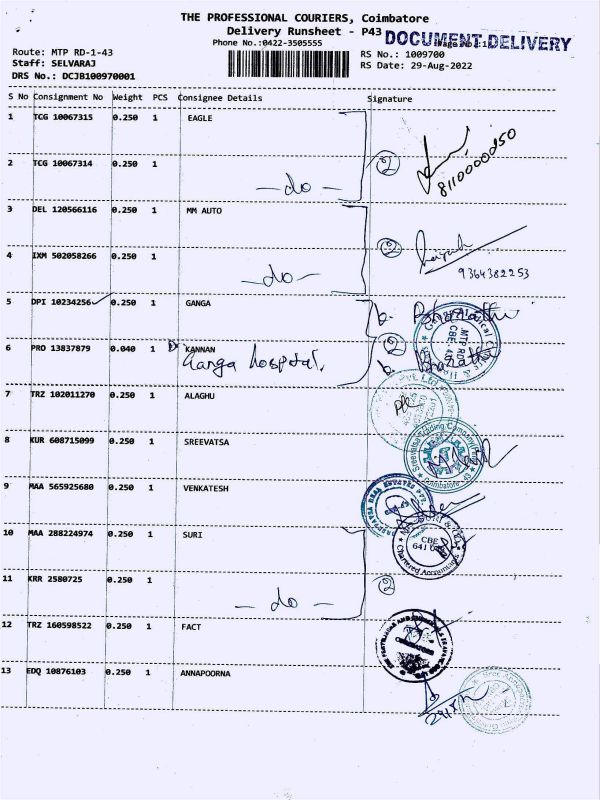 THE PROFESSIONAL COURIERS, Coimbatore
Delivery Runsheet - P43
DOCUMENT DELIVERY
Phone No.:0422-3505555
Route: MTP RD-1-43
RS No.: 1009700
Staff: SELVARAJ
RS Date: 29-Aug-2022
DRS No.: DCJB100970001
S No Consignment No Weight PCS Consignee Details Signature
1 TCG 10067315 0.250 1 EAGLE
2 TCG 10067314 0.250 1 — do — 2 8110000d50
3 DEL 120566116 0.250 1 MM AUTO
4 IXM 502058266 0.250 1 — do — 2 9364382253
5 DPI 10234256 0.250 1 GANGA
6 PRO 13837879 0.040 1 Dr KANNAN 2
Ganga hospital.
7 TRZ 102011270 0.250 1 ALAGHU
8 KUR 608715099 0.250 1 SREEVATSA
9 MAA 565925680 0.250 1 VENKATESH
10 MAA 288224974 0.250 1 SURI
Chartered Accountants
11 KRR 2580725 0.250 1 — do — 2
12 TRZ 160598522 0.250 1 FACT
13 EDQ 10876103 0.250 1 ANNAPOORNA